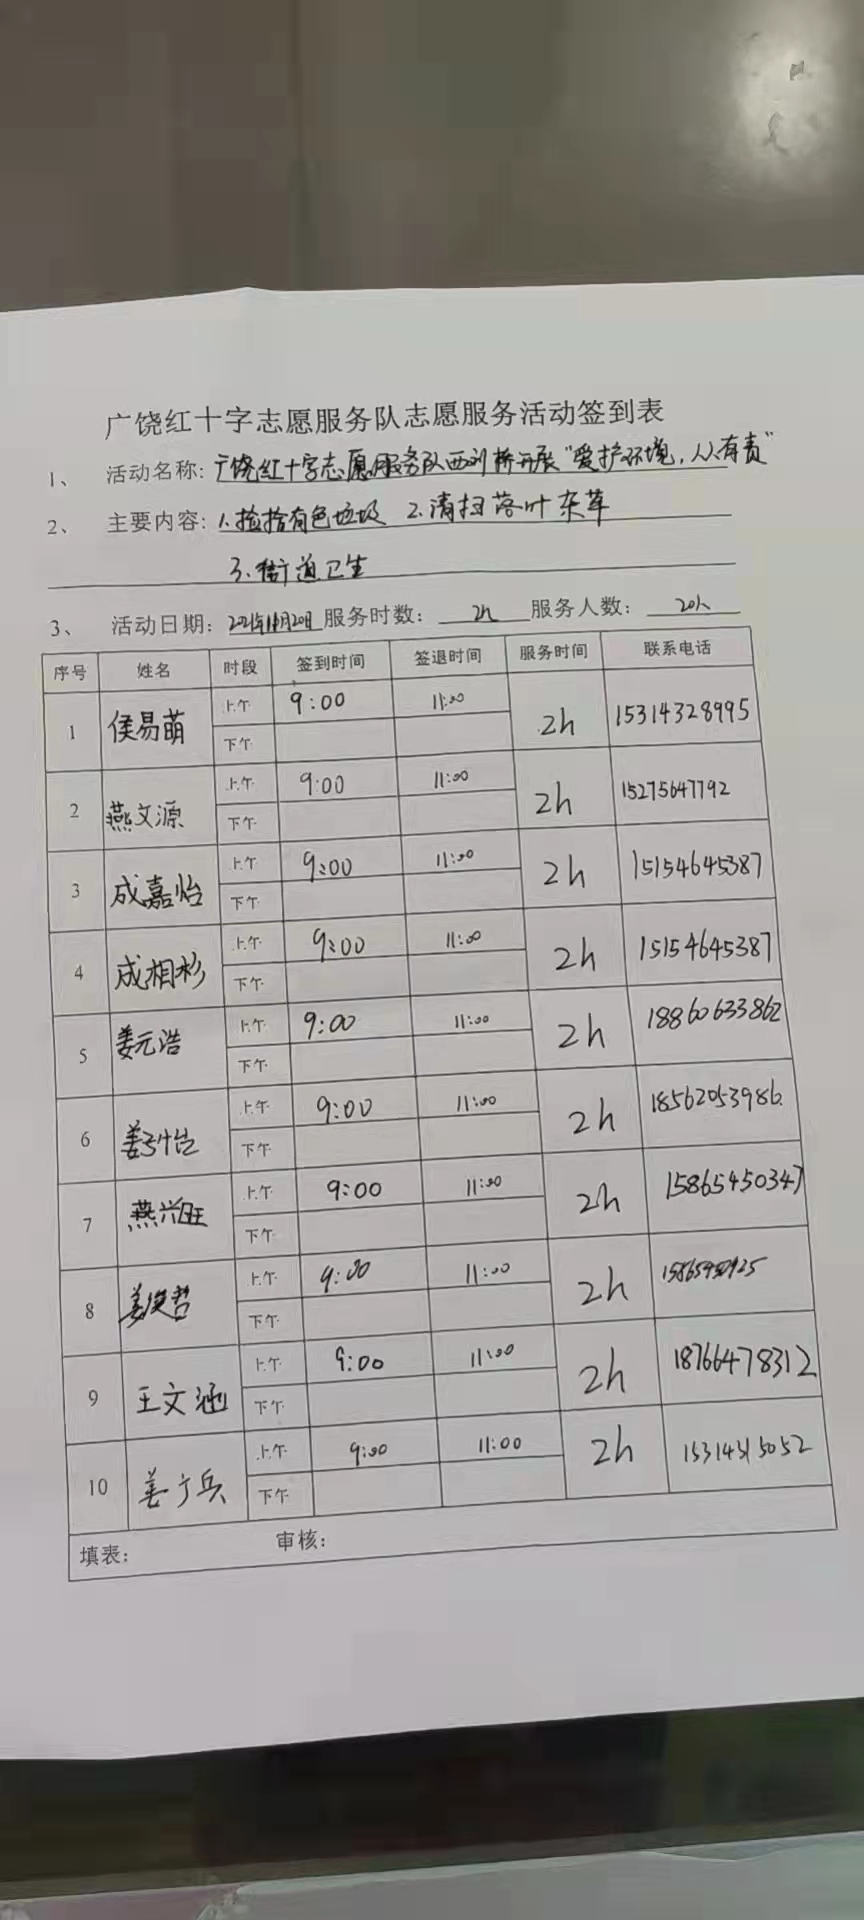 广饶红十字志愿服务队志愿服务活动签到表
1、 活动名称: 广饶红十字志愿服务队西刘桥开展“爱护环境,人人有责”
2、 主要内容: 1.捡拾有色垃圾 2.清扫落叶杂草
3.街道卫生
3、 活动日期: 2021年11月20日 服务时数: 2h 服务人数: 20人
序号 姓名 时段 签到时间 签退时间 服务时间 联系电话
1 侯易萌 上午 9:00 11:00 2h 15314328995
下午
2 燕文源 上午 9:00 11:00 2h 15275647792
下午
3 成嘉怡 上午 9:00 11:00 2h 15154645387
下午
4 成相杉 上午 9:00 11:00 2h 15154645387
下午
5 姜元浩 上午 9:00 11:00 2h 18860633862
下午
6 上午 9:00 11:00 2h 18562053986
下午
7 燕兴旺 上午 9:00 11:00 2h 15865450347
下午
8 姜俊哲 上午 9:00 11:00 2h
下午
9 王文涵 上午 9:00 11:00 2h 18766478312
下午
10 姜广兵 上午 9:00 11:00 2h 15314315052
下午
填表: 审核: